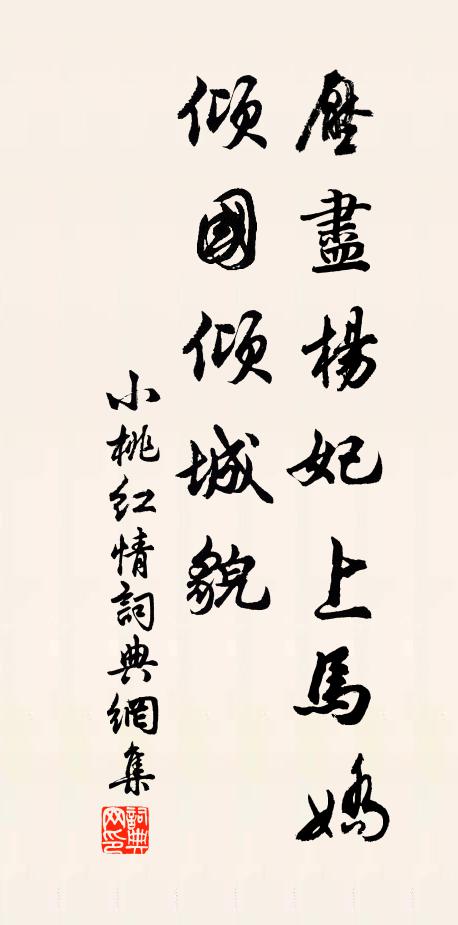 壓盡楊妃上馬嬌
傾國傾城貌
小桃紅情詞典網集
詞典網印